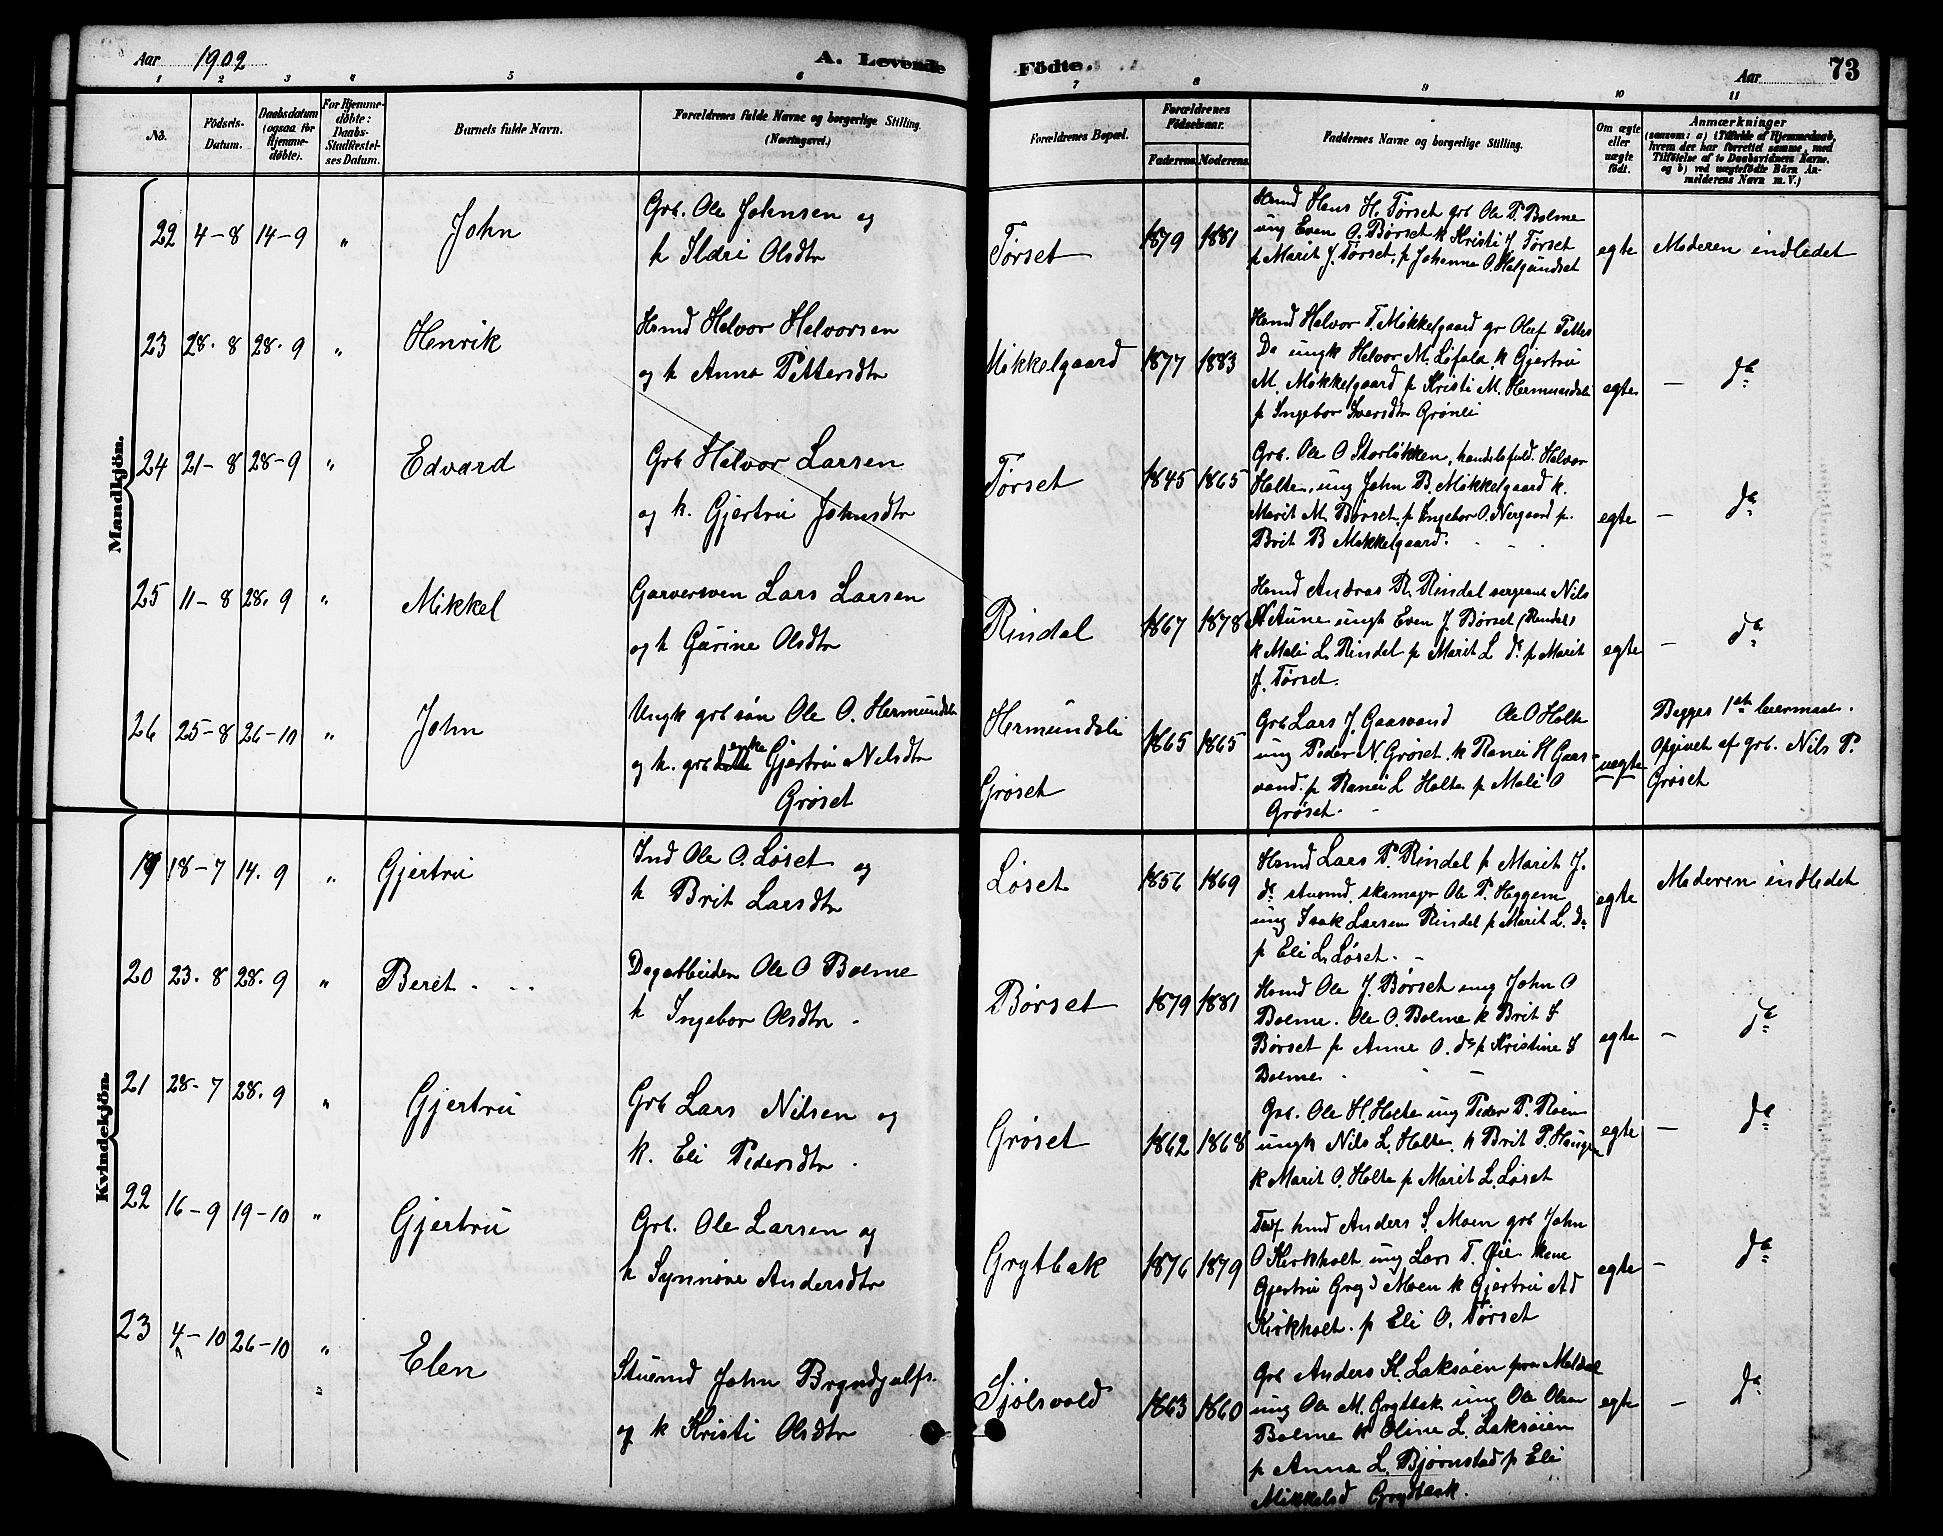 Aar 1902 A. Levende Födte. Aar 73
1 2 3 4 5 6 7 8 9 10 11
No. Födsels-Datum. Daabsdatum (ogsaa for Hjemme-døbte). For Hjemme-døbte: Daabs-Stadfestel-ses Datum. Barnets fulde Navn. Forældrenes fulde Navne og borgerlige Stilling. (Næringsvei.) Forældrenes Bopæl. Forældrenes Födselsaar. Faderens. Moderens. Faddernes Navne og borgerlige Stilling. Om ægte eller uægte födt.
Anmærkninger
(saasom: a) i Tilfælde af Hjemmedaab,
hvem der har forrettet samme, med
Tilföielse af to Daabsvidners Navne.
og b) ved uægtefödte Börn An-
melderens Navn m. V.)
Mandkjön.
22 4-8 14-9 " John
Grb. Ole Johnsen og
h Sldri Olsdtr
Tørset 1879 1881
Hmd Hans H. Tørset grb Ole P. Bolme
ung Even O. Børset k Kristi J Tørset
p Marit J. Tørset, p Johanna O. Halgundset
egte Moderen indledet
23 28-8 28-9 " Henrik
Hsmd Halvor Halvorsen
og h Anna Pettersdtr
Mikkelgaard 1877 1883
Hsmd Halvor T. Mikkelgaard gr Oluf Petter
Do ungk Halvor M. Løfald k Gjertru
M. Mikkelgaard p Kristi M. Hermundsli
p Ingebor Iversdtr Grønli
egte - do
24 21-8 28-9 " Edvard
Grb Halvor Larsen
og k. Gjertru Johnsdtr
Tørset 1845 1865
Grb. Ole O Storløkken, handelsfuld. Halvor
Holte, ung John B. Mikkelgaard k.
Marit M. Børset, p Ingebor O. Nergaard p.
Brit B Mikkelgaard.
egte - do
25 11-8 28-9 " Mikkel
Garversven Lars Larsen
og h Gurine Olsdtr
Rindal 1867 1878
Hsmd Andras R. Rindal sergeant Nils
Aune ungk Even J. Børset (Rindal)
k Mali L Rindal p Marit L do p Marit
J. Tørset.
egte - do
26 25-8 26-10 " John
Ungk grbsøn Ole O. Hermundsli
og k. grb enke Gjertru Nilsdtr
Grøset
Hermundsli
Grøset
1865 1865
Grb Lars J. Gaasvand Ole O Holte
ung Peder N. Grøset. k Ranei H Gaas-
vand. p Ranei L Holte p Mali O
Grøset.
uegte
Begges 1ste leiermaal.
Opgivet af grb. Nils P.
Grøset
Kvindekjön.
19 18-7 14-9 " Gjertru
Ind Ole O. Løset og
h Brit Larsdtr
Løset 1856 1869
Hsmd Lars P. Rindal p Marit J.
do stuemd, skomager Ole P. Heggem
ung Isak Larsen Rindal p Marit L. Do
p Eli L. Løset.
egte Moderen indledet
20 23-8 28-9 " Beret
Dagarbeider Ole O Bolme
h Ingebor Olsdtr
Børset 1879 1881
Hsmd Ole J. Børset ung John O
Bolme. Ole O. Bolme k Brit I
Børset p Anne O. do p Kristine I
Bolme
egte - do
21 28-7 28-9 " Gjertru
Grb Lars Nilsen og
k. Eli Pedersdtr
Grøset 1862 1868
Grb. Ole H. Holte ung Peder P. Moen
ungk Nils L. Holte. k Brit P. Haugen
k Marit O. Holte p Marit L. Løset
egte - do
22 16-9 19-10 " Gjertru
Grb. Ole Larsen og
h Synnøve Andersdtr
Grytbak 1876 1879
hmd Anders S. Moen grb John
O Kirkholt ung Lars T. Øie kone
Gjertru Moen k Gjertru Ad
Kirkholt. p Eli O. Tørset
egte - do
23 4-10 26-10 " Elen
Stuemd John Bryndjulfs.
og k Kristi Olsdtr
Sjølsvold 1863 1860
Grb Anders H. Laksøen fra Meldal
ung Ole M. Grytbak ung Ole Olsen
Bolme k Oline L. Laksøien
p Anna L. Bjørnstad p Eli
Mikkelsd Grytbak.
egte - do